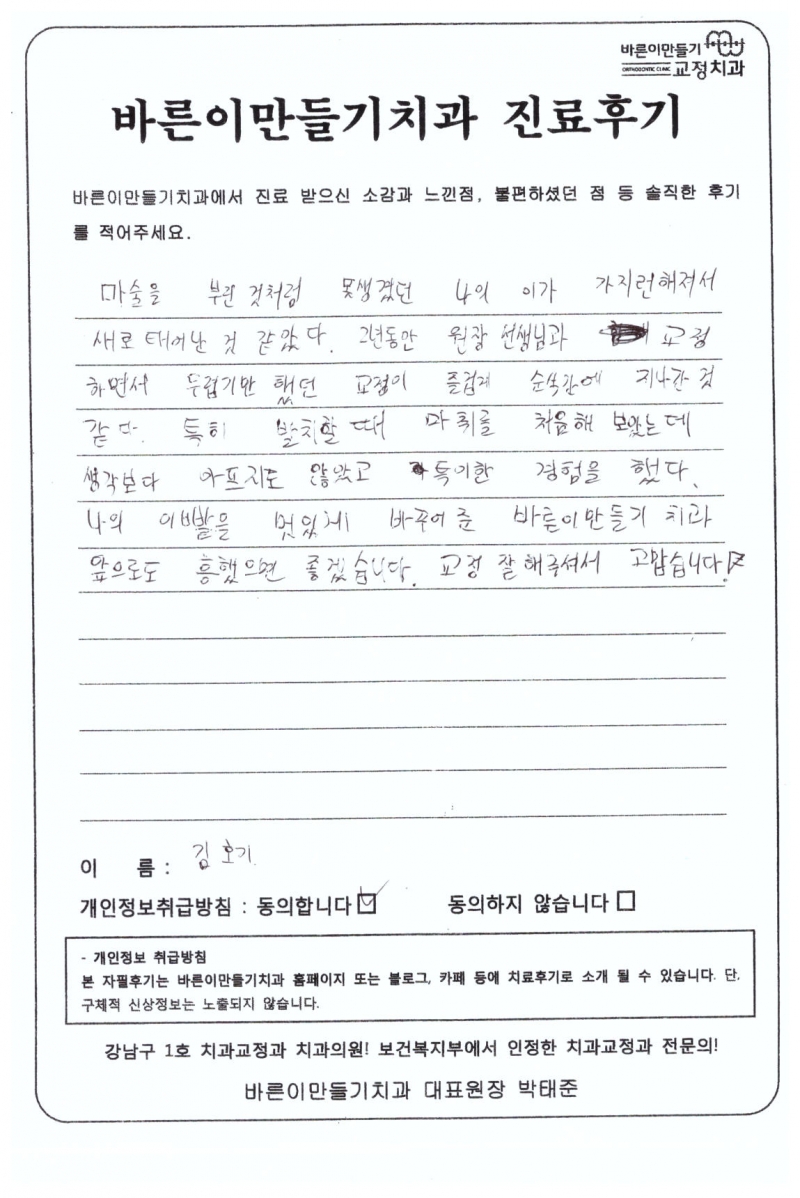 바른이만들기
ORTHODONTIC CLINIC 교정치과
바른이만들기치과 진료후기
바른이만들기치과에서 진료 받으신 소감과 느낀점, 불편하셨던 점 등 솔직한 후기
를 적어주세요.
마술을 부린 것처럼 못생겼던 나의 이가 가지런해져서
새로 태어난 것 같았다. 2년동안 원장 선생님과 교정
하면서 두렵기만 했던 교정이 즐겁게 순식간에 지나간 것
같다. 특히 발치할 때 마취를 처음해 보았는데
생각보다 아프지도 않았고 특이한 경험을 했다.
나의 이빨을 멋있게 바꾸어 준 바른이만들기 치과
앞으로도 흥했으면 좋겠습니다. 교정 잘해주셔서 고맙습니다.
이 름 : 김호기
개인정보취급방침 : 동의합니다 ☑ 동의하지 않습니다 □
- 개인정보 취급방침
본 자필후기는 바른이만들기치과 홈페이지 또는 블로그, 카페 등에 치료후기로 소개 될 수 있습니다. 단,
구체적 신상정보는 노출되지 않습니다.
강남구 1호 치과교정과 치과의원! 보건복지부에서 인정한 치과교정과 전문의!
바른이만들기치과 대표원장 박태준